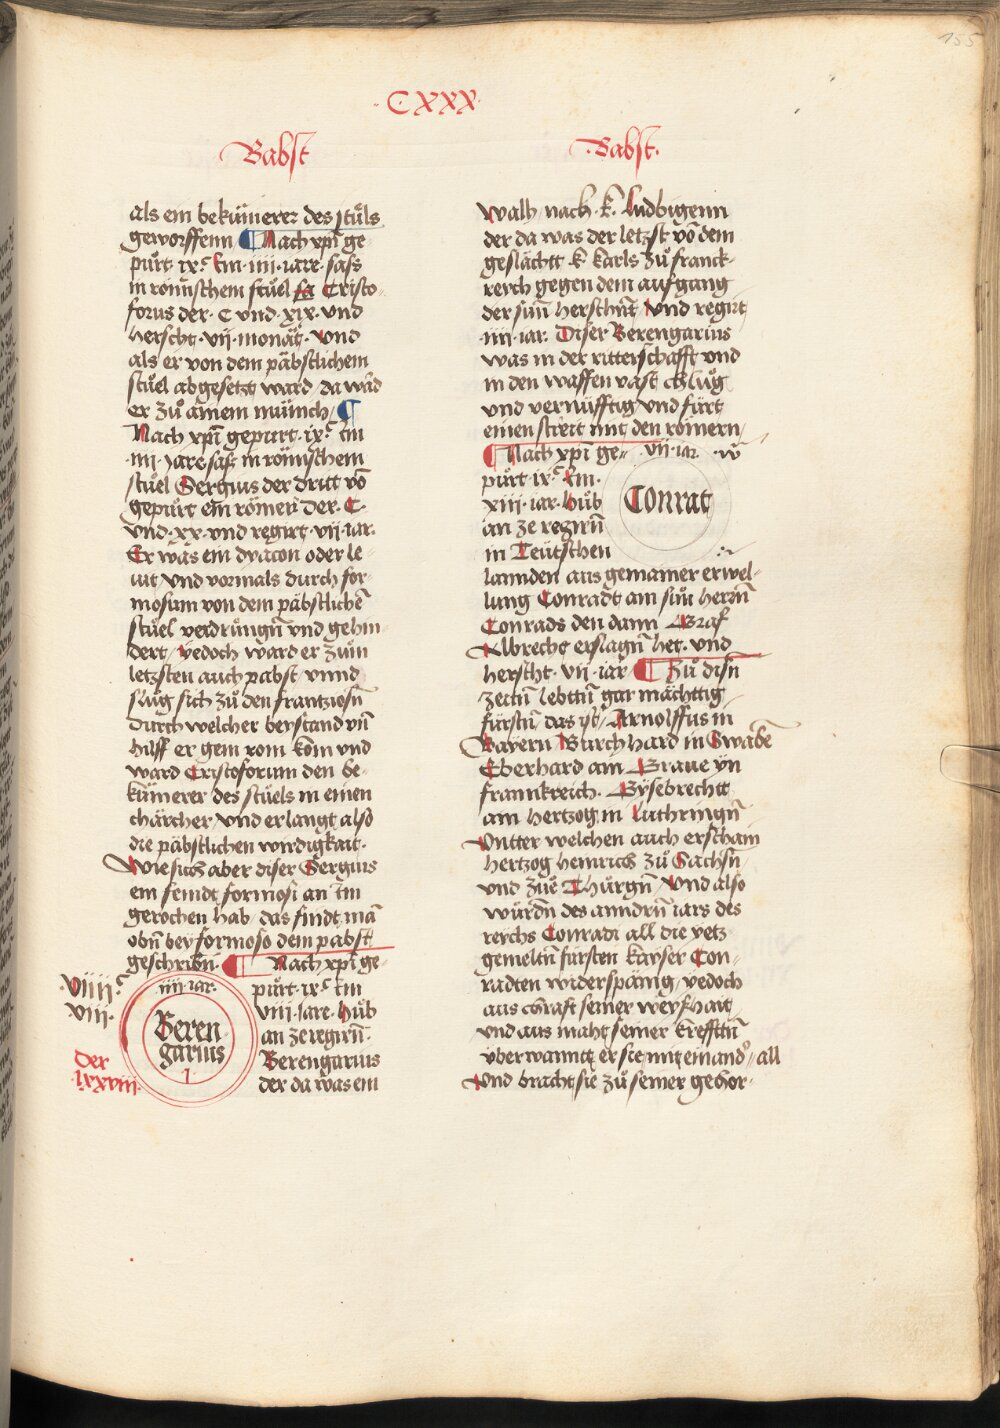 155
·CXXX·
Babst
als ein bekümerer des stůls
geworffenn ¶ Nach xp̃i ge
půrt ix.ᶜ Im · iiii · iare · sass
in römischem stůel sa Cristo-
forus der · C vnd · xix · vnd
herscht · vii · monät · Vnd
als er von dem päbstlichem
stůel abgesetzt ward · da ward
er zů ainem münch / ¶
Nach xp̃i gepurt · ix.ᶜ im
·iiii· Jare sass in römischem
stůel Sergius der dritt võ
gepůrt ein römer der · C ·
vnd · xx · vnd regirt · vii · iar ·
Er was ein dyacon oder le-
uit vnd vormals durch for-
mosum von dem päbstlichẽ
stůel verdrůngñ vnd gehin-
dert / yedoch ward er zům
letzsten auch pabst · vnnd
slůg sich zů den frantzosñ
durch welcher beystand vñ
hilff er gein rom kom vnd
ward Cristoforum den be-
kümerer des stůels in einen
chärcher / vnd erlangt also
die päbstlichen wirdigkait ·
Wie sich aber diser Sergius
ein feindt formosi an im
gerochen hab das findt mã
obñ bey formoso dem pabst
geschribñ · ¶ Nach xp̃i ge-
půrt · ix.ᶜ im
viii · Jare · hůb
an ze regirñ ·
Berengarius
der da was ein
viiii.ᶜ
viii·
der
·lxxviii·
iiii · iar ·
Beren
garius
1
Babst·
walh / nach · k̃ · Ludbigenn
der da was der letzst võ dem
geslächtt · k̃ · karls zů franck-
reich gegen dem aufgang
der sunñ herschint / Vnd regirt
·iiii· iar · Diser Berengarius
was in der ritterschafft vnd
in den waffen vast chlůg
vnd vernüfftig / vnd fürt
einen streit mit den römern /
¶ Nach xp̃i ge-
půrt ix.ᶜ Im ·
xiii · iar · hůb
an ze regirñ
in Teütschen
·vii· iar ·
Conrat
lannden aus gemainer erwel-
lung Conradt ain sůn herrñ
Conrads den dann Graf
Albrecht erslagñ het · vnd
herscht · vii · iar ¶ Zů disñ
zeitñ lebttñ gar mächttig
fürstñ / das ist / Arnolffus in
Bayern Burchhard in Swabẽ
Eberhard ain Graue yn
frannkreich · Gysebrechtt
ain hertzog in Luthringñ
Vntter welchen auch erschain
hertzog heinrich zů Sachsñ
vnd zůe Thürgñ / Vnd also
würdñ des anndrñ iars des
reychs Conradi all die yetz
gemeltñ fürsten kayser Con-
radten widerspänig / yedoch
aus chraft seiner weyszhait
vnd aus maht seiner krefftñ
vberwanntt er sie mit einand · all
Vnd bracht sie zů seiner gehor-